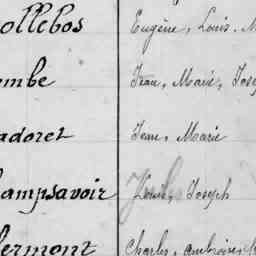 ollebos Eugène, Louis. M
ombe Jean, Marie, Jose
adoret Jean, Marie
ampsavoir Louis, Joseph
lermont Charles, ambroise,